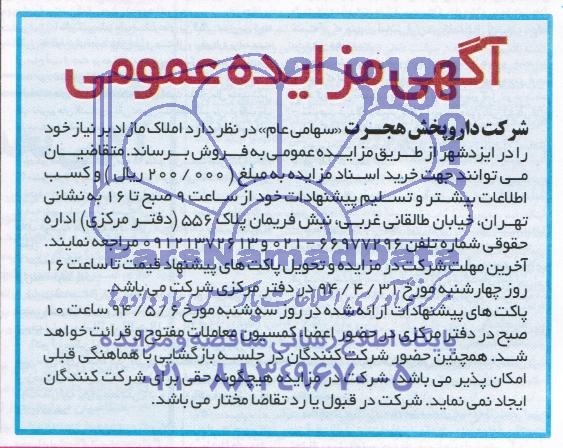 آگهی مزایده عمومی
شرکت داروپخش هجرت «سهامی عام» در نظر دارد املاک مازاد بر نیاز خود
را در ایزدشهر از طریق مزایده عمومی به فروش برساند. متقاضیان
می توانند جهت خرید اسناد مزایده به مبلغ (۲۰۰/۰۰۰ ریال) و کسب
اطلاعات بیشتر و تسلیم پیشنهادات خود از ساعت ۹ صبح تا ۱۶ به نشانی
تهران، خیابان طالقانی غربی، نبش فریمان پلاک ۵۵۶ (دفتر مرکزی) اداره
حقوقی شماره تلفن ۶۶۹۷۷۲۹۶-۰۲۱ و ۰۹۱۲۱۳۷۲۶۱۳ مراجعه نمایند.
آخرین مهلت شرکت در مزایده و تحویل پاکت های پیشنهاد قیمت تا ساعت ۱۶
روز چهارشنبه مورخ ۹۴/۴/۳۱ در دفتر مرکزی شرکت می باشد.
پاکت های پیشنهادات ارائه شده در روز سه شنبه مورخ ۹۴/۵/۶ ساعت ۱۰
صبح در دفتر مرکزی در حضور اعضاء کمسیون معاملات مفتوح و قرائت خواهد
شد. همچنین حضور شرکت کنندگان در جلسه بازگشایی با هماهنگی قبلی
امکان پذیر می باشد. شرکت در مزایده هیچگونه حقی برای شرکت کنندگان
ایجاد نمی نماید. شرکت در قبول یا رد تقاضا مختار می باشد.
ParsNamadData
پایگاه اطلاع رسانی مناقصه و مزایده
۰۲۱-۸۸۳۴۹۶۷۰-۵